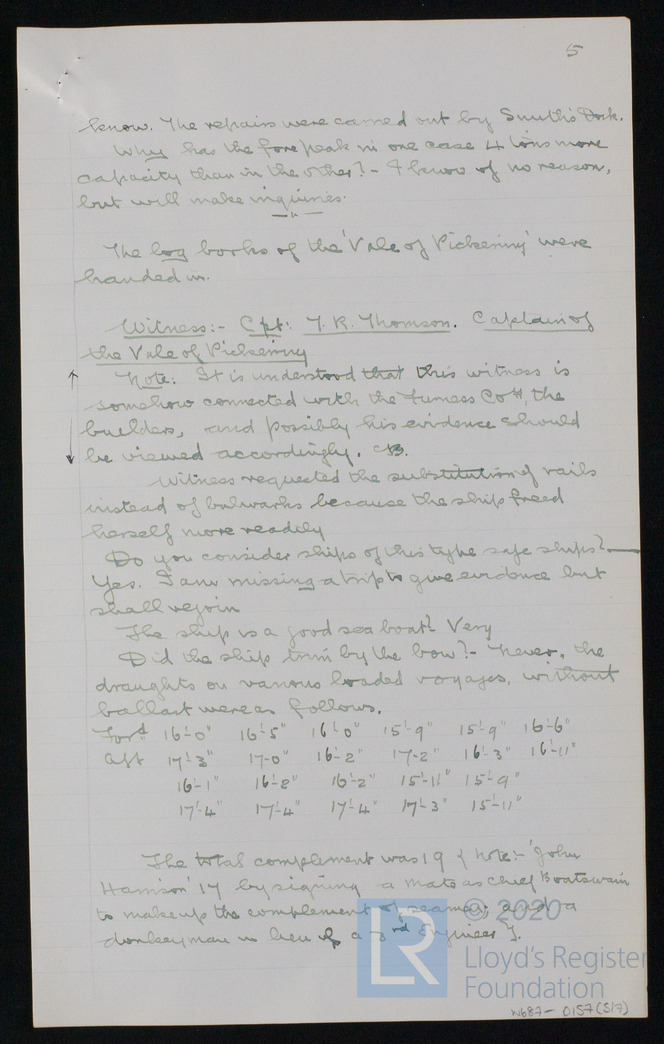 5
know. The repairs were carried out by Smith's Dock.
Why has the fore peak in one case 4 tons more
capacity than in the other? - I know of no reason,
but will make inquiries.
The log books of the 'Vale of Pickering' were
handed in.
Witness:- Cpt: T. R. Thomson. Captain of
the Vale of Pickering
Note: It is understood that this witness is
somehow connected with the Furness Coy, the
builders, and possibly his evidence should
be viewed accordingly.
Witness requested the substitution of rails
instead of bulwarks because the ship freed
herself more readily
Do you consider ships of this type safe ships? -
Yes. I am missing a trip to give evidence but
shall rejoin
The ship is a good sea boat? Very
Did the ship trim by the bow? - Never, the
draughts on various loaded voyages, without
ballast were as follows.
Ford 16'-0" 16'-5" 16'-0" 15'-9" 15'-9" 16'-6"
Aft 17'-3" 17'-0" 16'-2" 17'-2" 16'-3" 16'-11"
16'-1" 16'-2" 16'-2" 15'-11" 15'-9"
17'-4" 17'-4" 17'-4" 17'-3" 15'-11"
The total complement was 19 { Note:- 'John
Harrison' 17 by signing a mate as chief Boatswain
to make up the complement of seamen; and a
donkeyman in lieu of a 3rd Engineer }.
© 2020
LR
Lloyd's Register
Foundation
W687-0157(5/7)